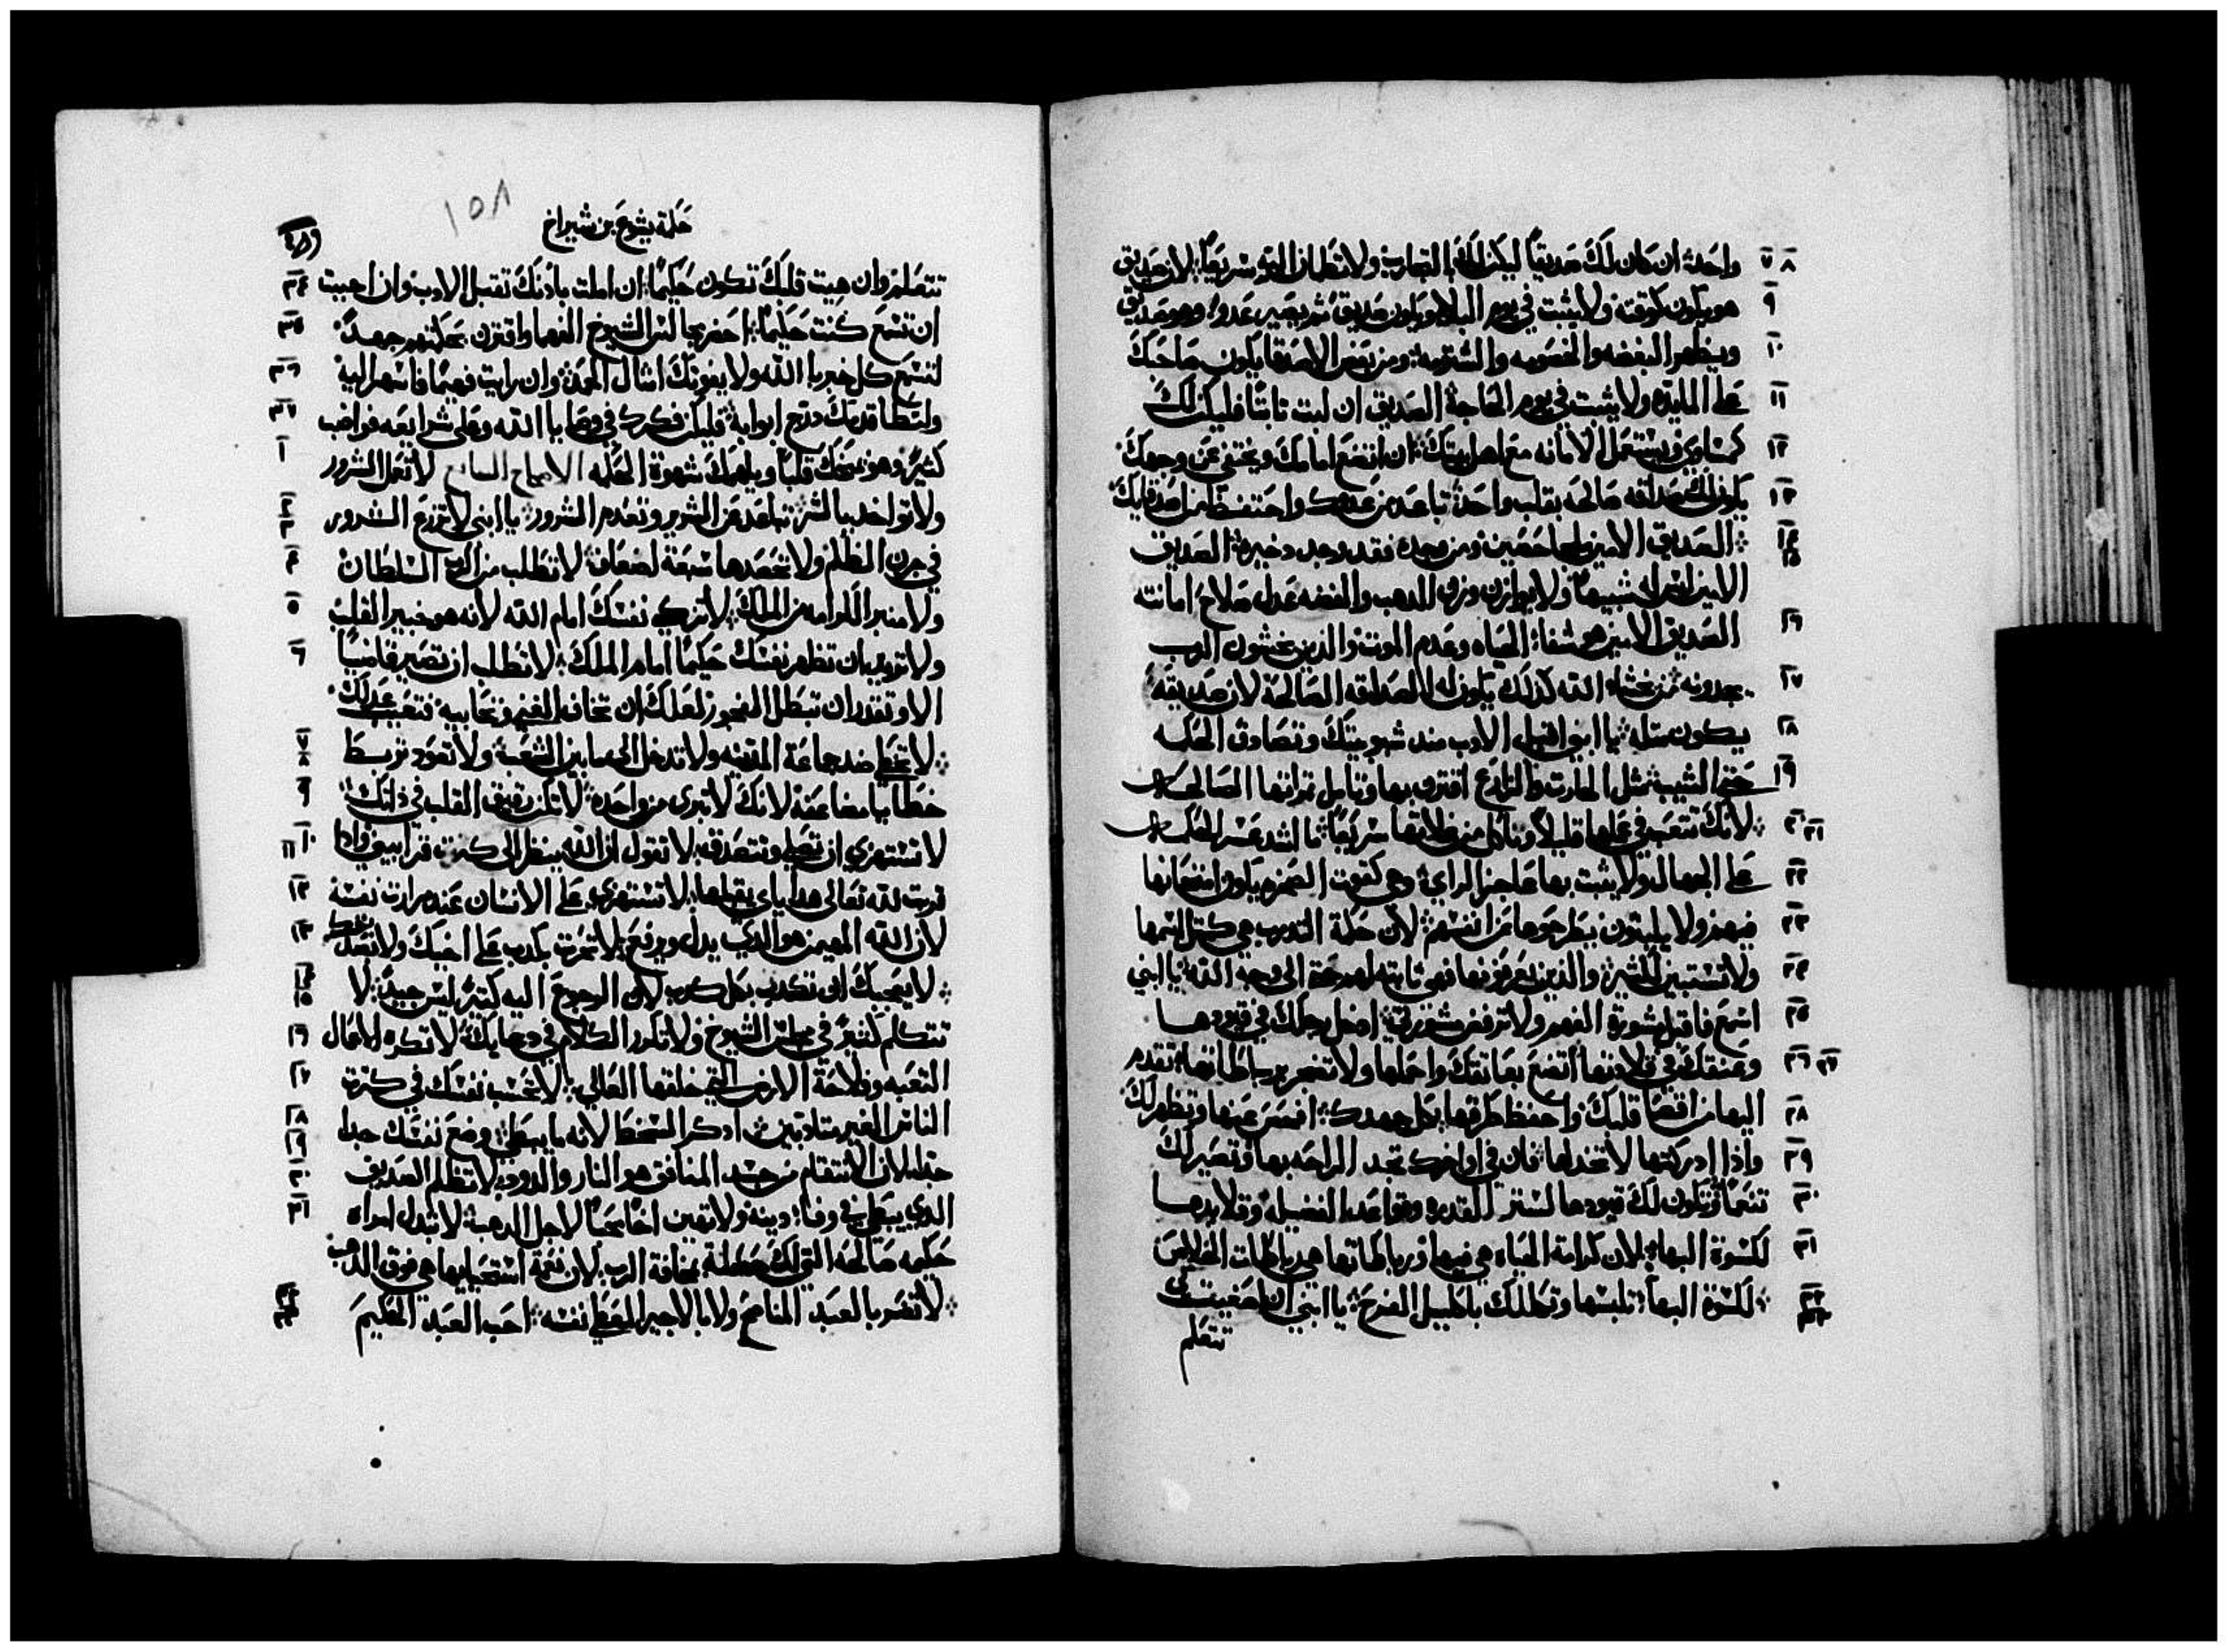 واحدة ان كان لك صديقاً ليكن لك بالتجارب ولا تطمان اليه سريعاً لان صديق ٧ ٨
هو يكون كوقته ولا يثبت في يوم البلا ويكون صديق ثم يصير عدوا وهو صديق ٩
ويظهر البغضه والخصومه والشتيمه ومن بعض الاصدقا يكون صاحبك ١٠
علي المايده ولا يثبت في يوم الحاجة الصديق ان لبت تابتاً فليكن لك ١١
كمساوي ويستعمل الامانه مع اهل بيتك ان اتضع امامك ويختفي عن وجهك ١٢
يكون لك صداقه صالحه بقلب واحد تباعد من عدوك واحتفظ من اصدقايك ١٣
الصديق الامين ملجا حصين ومن وجده فقد وجد دخيره الصديق ١٤ ١٥
الامين ليس له شبيهاً ولا يوازن وزن الدهب والفضه عدل صلاح امانته
الصديق الامين هو شفا الحياه وعدم الموت والدين يخشون الرب ١٦
يجدونه من يخشا الله كدلك يكون له الصداقه الصالحة لان صديقه ١٧
يكون مثله يا ابني اقبل الادب مند شبوبيتك وتصادق الحكمه ١٨
حتى الشيب مثل الحارت والزارع اقترب بها وتامل تمراتها الصالحه ١٩
لانك تتعب في عملها قليلاً وتاكل من غلاتها سريعاً ما اشد عسر الحكمه ٢٠ ٢١
علي الجهال ولا يثبت بها عاجز الراي وهي كقوت الصخره يكون امتحانها ٢٢
فيهم ولا يلبتون يطرحوها عن انفسهم لان حكمة التدبير هي كمثل اسمها ٢٣
ولا تستبين لكثير والذين يعرفونها فهي ثابته لهم حتى الى وجه الله يا ابني ٢٤
اسمع فاقبل مشورة الفهم ولا ترفض مشورتي ادخل رجلك في قيودها ٢٥
وعنقك في قلادتها اتضع بعاتقك واحملها ولا تضجر برباطاتها تقدم ٢٦ ٢٧
اليها من اقصا قلبك واحفظ طرقها بكل جهدك افحص عنها وتظهر لك ٢٨
واذا ادركتها لا تخذلها فان في اواخرك تجد الراحه بها وتصير لك ٢٩
تنعماً وتكون لك قيودها لستر القدره وقواعد الفضيله وقلايدها ٣٠
لكسوة البها لان كرامة الحياه هي فيها ورباطاتها هي رباطات الخلاص ٣١
لكسوة البها تلبسها وتكللك باكليل الفرح يا ابني ان اصغيت لي ٣٢ ٣٣
تتعلم
١٥٨
حكمة يشوع بن شيراخ
تتعلم وان هيت قلبك تكون حكيماً ان املت باذنك تقبل الادب وان احببت ٣٤
ان تسمع كنت حكيماً احضر مجالس الشيوخ الفهما واقترن بحكمتهم جهدك ٣٥
لتسمع كل خبر يا الله ولا يفوتك امثال المعرفة وان رايت فهيماً فاسهر اليه ٣٦
ولتطا قدمك درج ابوابه فليكن فكرك في وصايا الله وعلى شرايعه فواضب ٣٧
كثيرً وهو يمنحك قلباً ويلهمك شهوة الحكمه الاصحاح السابع لا تفعل الشرور ١
ولا تواخد بالشر تباعد عن الشرير وتعدم الشرور يا ابني لا تزرع الشرور ٢ ٣
في حرث الظلم ولا تحصدها سبعة اضعاف لا تطلب من الرب السلطان ٤
ولا منبر الكرامه من الملك لا تزكي نفسك امام الله لانه هو خبير القلب ٥
ولا تريد بان تظهر نفسك حكيماً امام الملك لا تطلب ان تصير قاضياً ٦
الا وتقدر ان تبطل الفجور لعلك ان تخاف الغني وتحابيه فتعيب عدلك
لا تخطي ضد جماعة المدينه ولا تدخل الى ما بين الشعب ولا تعود تربط ٧ ٨
خطايا مضاعفة لانك لا تبرى من واحدة لا تكن رقيق القلب في ذاتك ٩
لا تستهزي ان تصلي وتتصدق لا تقول ان الله ينظر الى كثرت قرابيني واذا ١٠ ١١
قربت لله تعالى هداياي يقبلها لا تستهزي على الانسان عند مرارت نفسه ١٢
لان الله المهيمن هو الذي يدل ويرفع لا تحرث بكدب على اخيك ولا تفعل ١٣
لا يعجبك ان تكدب بكل كدب لان الرجوع اليه كثيرً ليس جيدً لا ١٤ ١٥
تتكلم كثيرً في مجلس الشيوخ ولا تكرر الكلام في دعايك لا تكره الاعمال ١٦
التعبه وفلاحة الارض التي خلقها العالي لا تحسب نفسك في كثرت ١٧
الناس الغير متادبين ادكر السخط لانه ما يبطي وضع نفسك جدا ١٨ ١٩
جدا لان الانتقام من جسد المنافق هو النار والدود لا تظلم الصديق ٢٠
الدي يبطي في وفا دينه ولا تهين اخاً محباً لاجل الدهب لا تبدل امراه ٢١
حكيمه صالحه التي لك معطاة بمخافة الرب لان نعمة استحيايها هي فوق الدهب
لا تضر بالعبد المناصح ولا بالاجير المعطي نفسه احب العبد الحكيم ٢٢ ٢٣